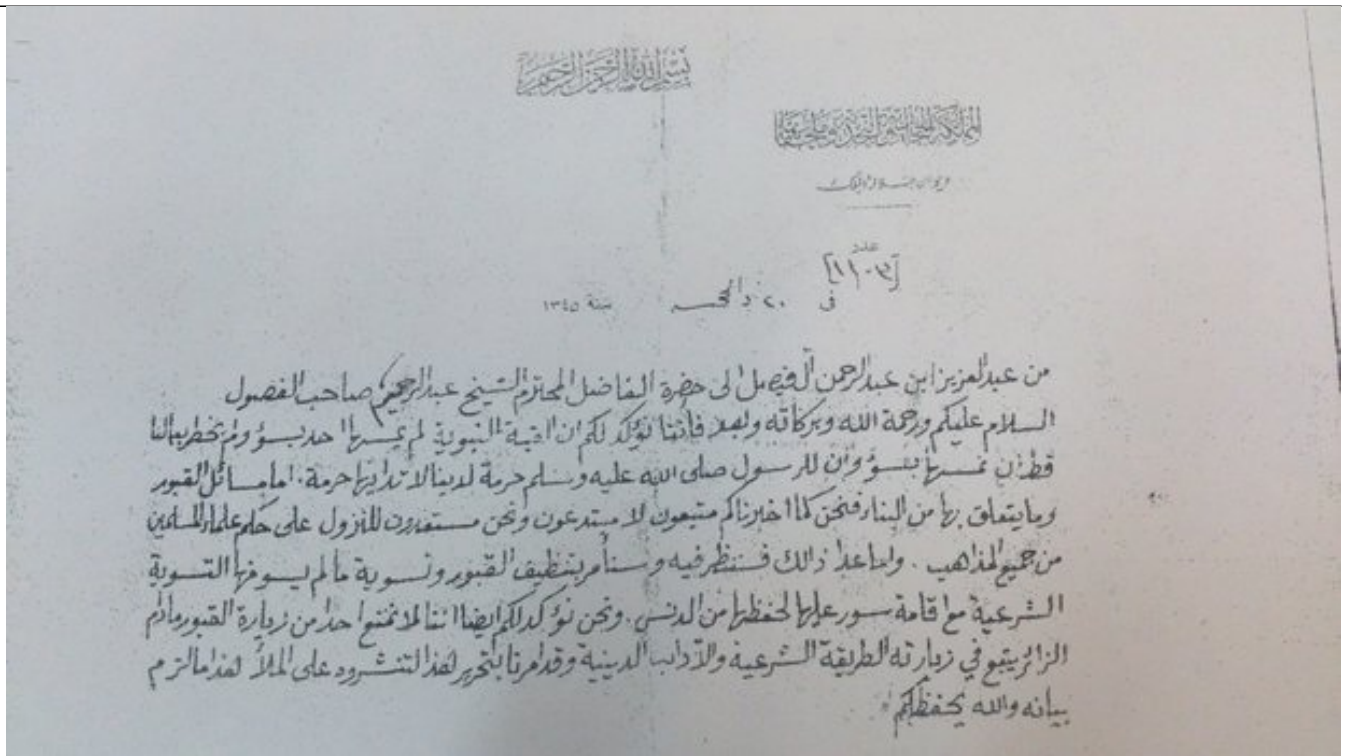 بسم الله الرحمن الرحيم
المملكة الحجازية النجدية وملحقاتها
ديوان جلالة الملك
عدد
[١١٠٣]
في ٢٠ ذالحجه سنة ١٣٤٥
من عبدالعزيز ابن عبدالرحمن آل فيصل الى حضرة الفاضل المحترم الشيخ عبدالرحيم صاحب الفصول
السلام عليكم ورحمة الله وبركاته وبعد فاننا نؤكد لكم ان القبة النبوية لم يمسها احد بسؤ ولم يخطر ببالنا
قط ان نمسها بسؤ وان للرسول صلى الله عليه وسلم حرمة لدينا لا تدانيها حرمة. اما مسائل القبور
وما يتعلق بها من البناء فنحن كما اخبرناكم متبعون لا مبتدعون ونحن مستعدون للنزول على حكم علماء المسلمين
من جميع المذاهب. واما عدا ذالك فسننظر فيه وسنأمر بتنظيف القبور وتسوية ما لم يسوفها التسوية
الشرعية مع اقامة سور عليها لحفظها من الدنس. ونحن نؤكد لكم ايضا اننا لا نمنع احدا من زيارة القبور مادام
الزائر يتبع في زيارته الطريقة الشرعية والآداب الدينية وقد امرنا بتحرير لهذا لتنشروه على الملأ لهذا ما لزم
بيانه والله يحفظكم